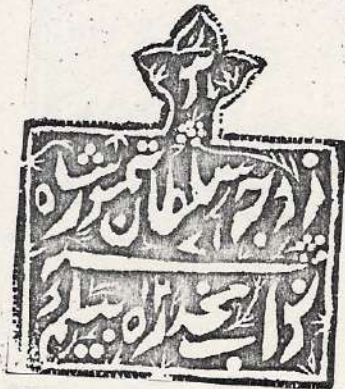 زوجه سلطان تیمورشاه
نواب مخدره بیگم